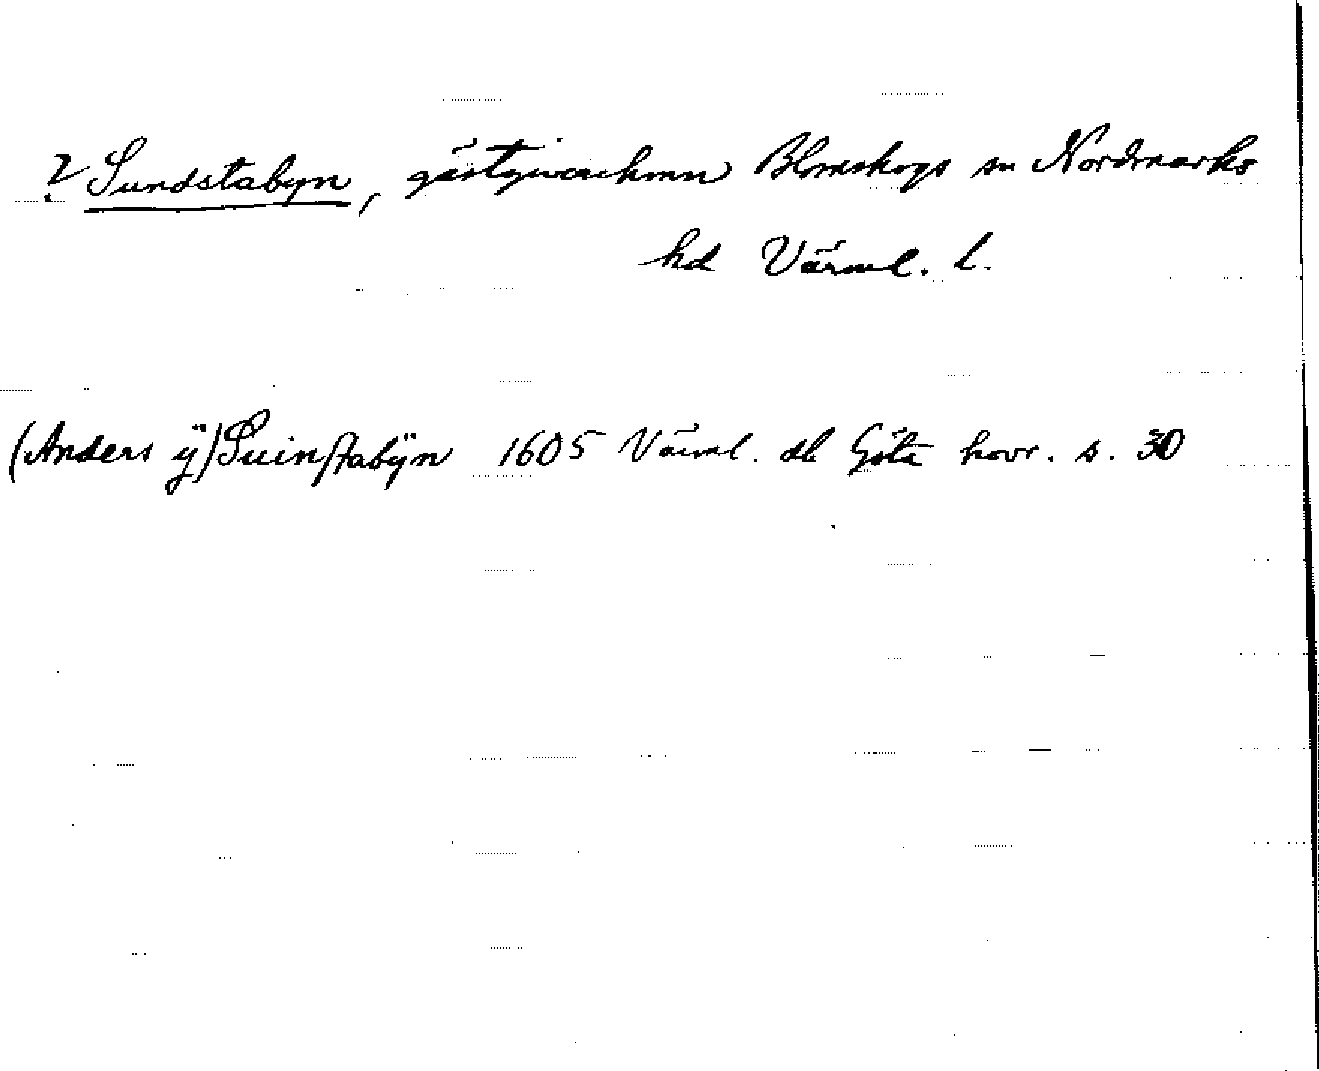 ? Sundstabyn, gästgivarehmn Blomskogs sn Nordmarks
hd Värml. l.
(Anders ÿ) Suinstabÿn 1605 Värml. dl Göta hovr. s. 30